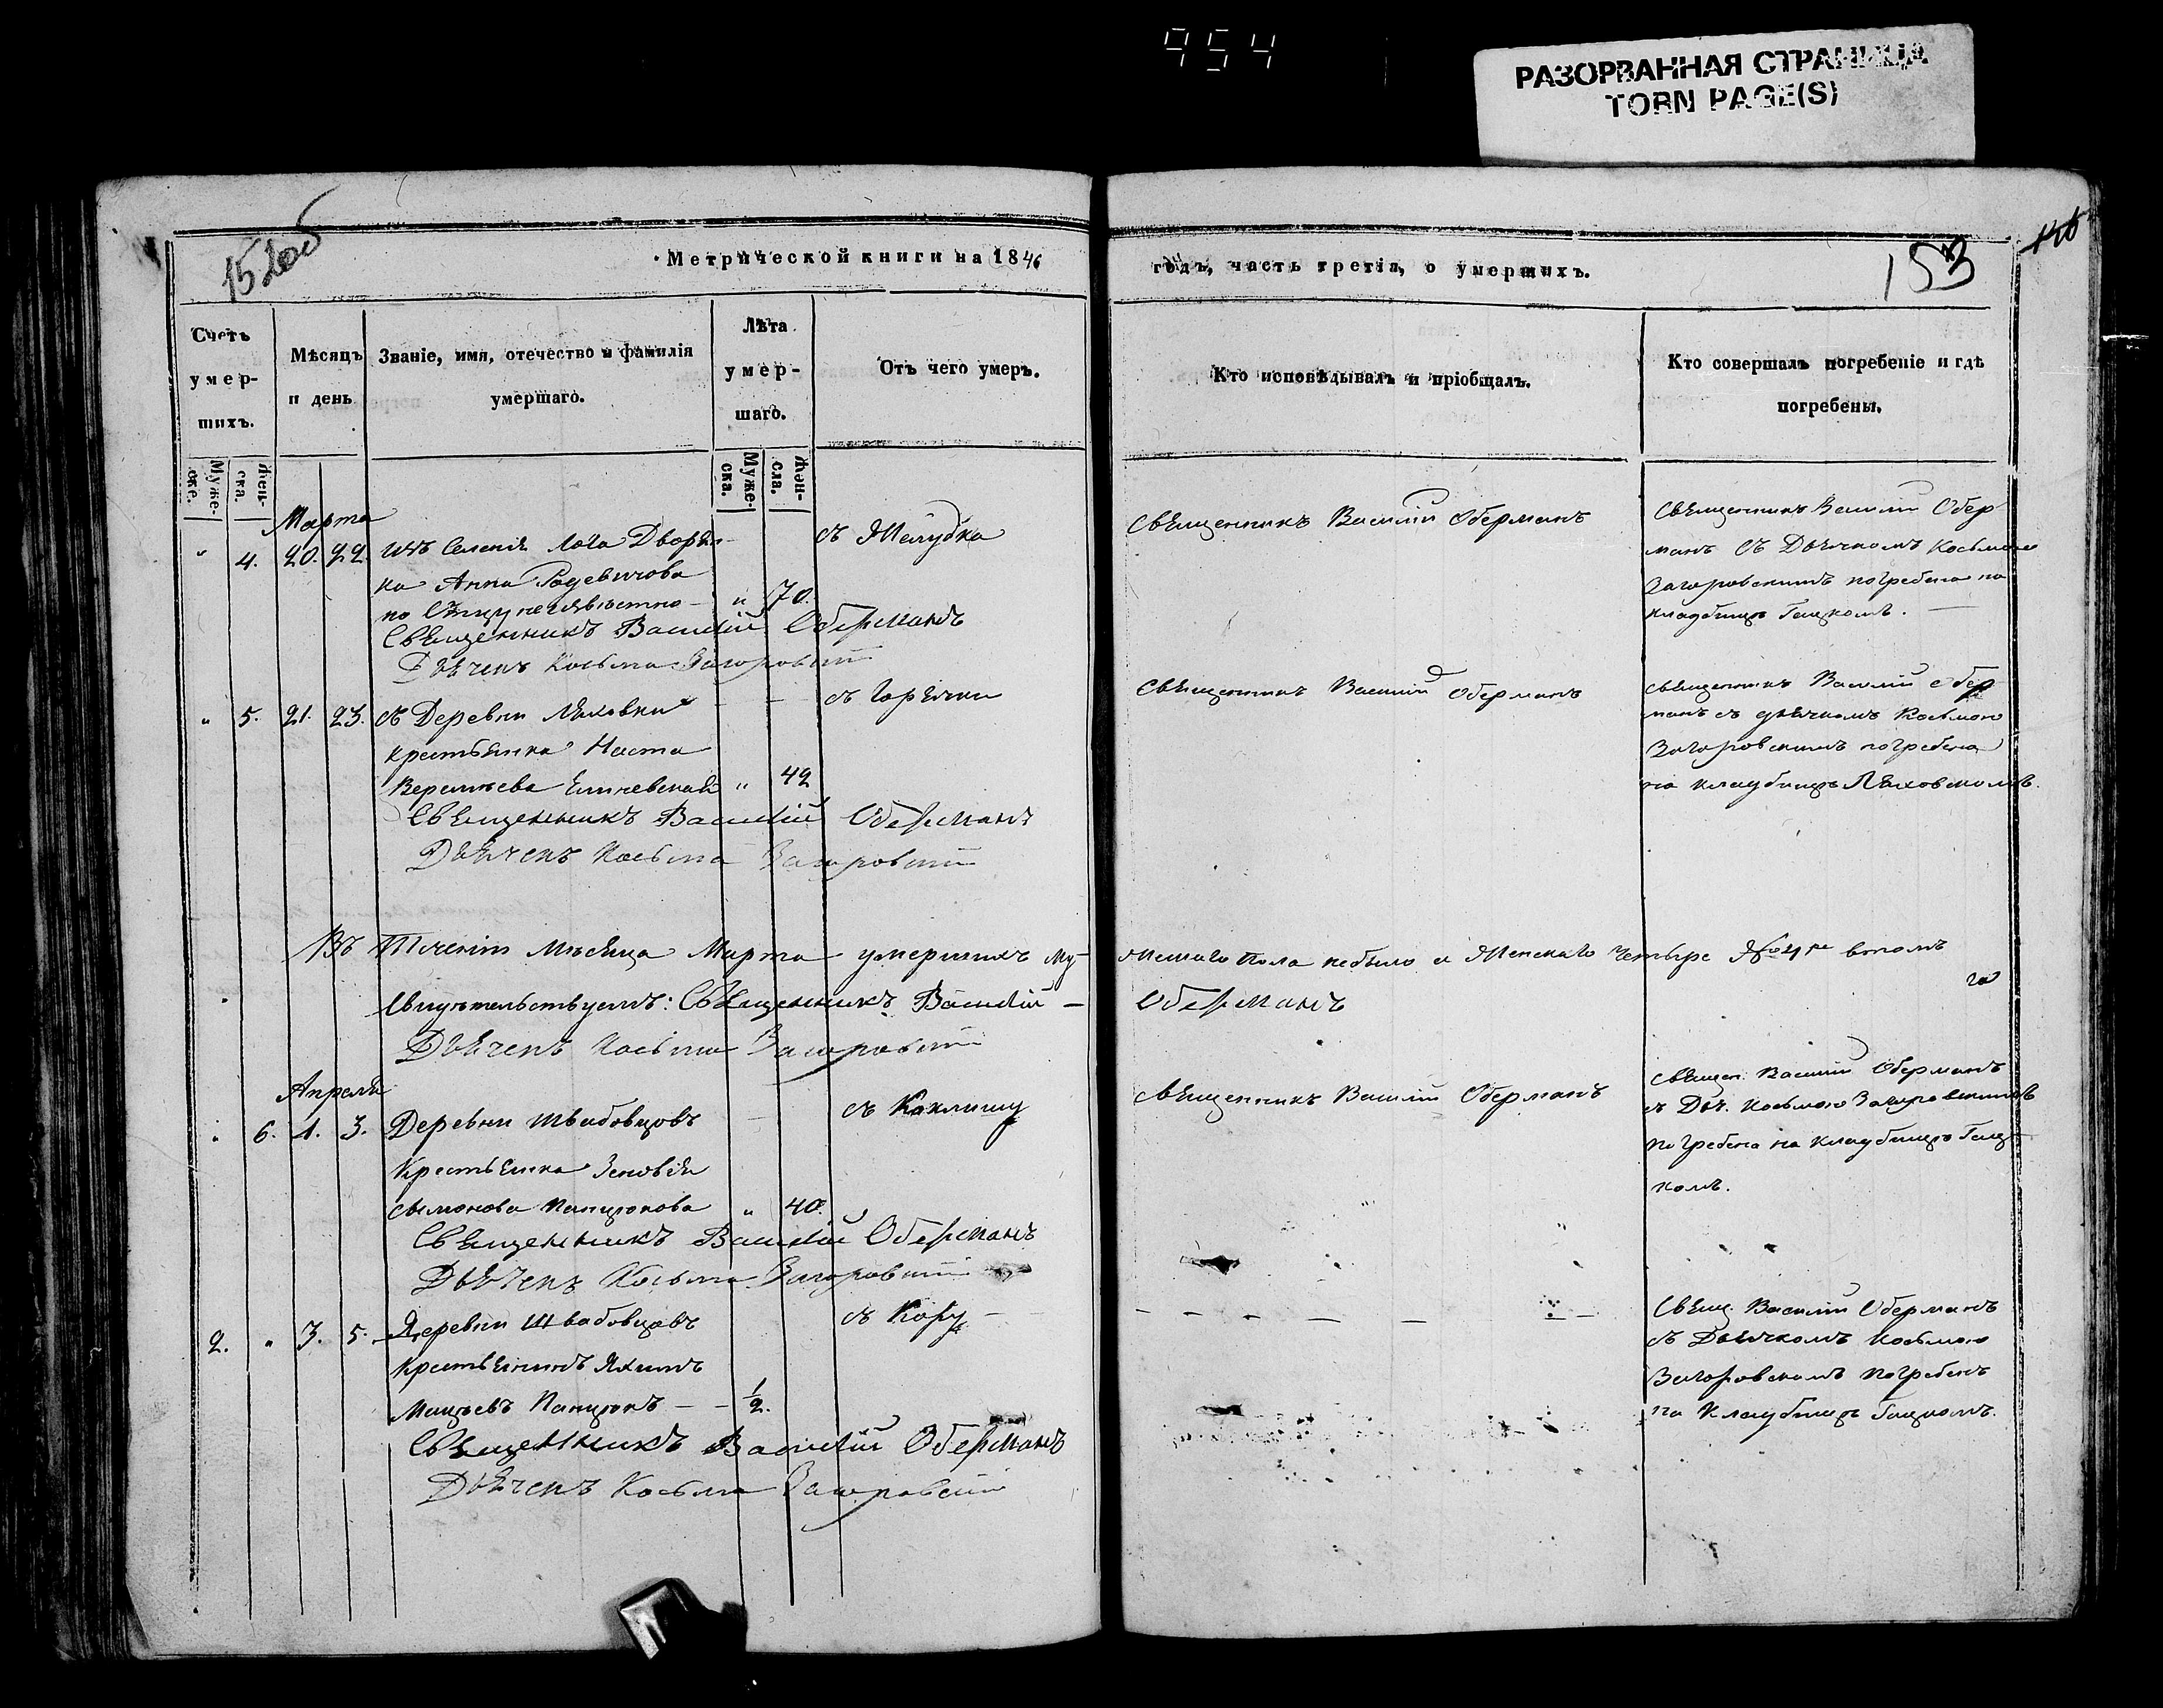 954
РАЗОРВАННАЯ СТРАНИЦА
TORN PAGE(S)
152 об
Метрической книги на 1846
годъ, часть третія, о умершихъ.
153
Счетъ умер-шихъ.
Мѣсяцъ и день
Званіе, имя, отечество и фамилія умершаго.
Лѣта умер-шаго.
Отъ чего умеръ.
Кто исповѣдывалъ и пріобщалъ.
Кто совершалъ погребеніе и гдѣ погребены.
Муже-ске.
Жен-ска.
Муже-ска.
Жен-ска.
Марта
" 4. 20. 22. Изъ Селенія Дворян-
ка Анна
по Отцу неизвѣстно - " 70.
съ Желудка
Священникъ Василій Оберманъ
Дьячекъ Косьма Загоровскій
Священникъ Василій Оберманъ
Священникъ Василій Обер
манъ съ Дьячкомъ Косьмою
Загоровскимъ погребена на
кладбищѣ Гащкомъ.
" 5. 21. 23. съ Деревни Ляховки
крестьянка Наста
" 42
съ Горячки
Священникъ Василій Оберманъ
Дьячекъ Косьма Загоровскій
Священникъ Василій Оберманъ
священникъ Василій Обер
манъ съ дьячкомъ Косьмою
Загоровскимъ погребена
на кладбищѣ Ляховскомъ.
Въ Теченіи Мѣсяца Марта умершихъ Му-
жескаго Пола небыло а Женскаго Четыре № 4ре втомъ
Свидѣтельствуемъ: Священникъ Василій - Оберманъ
Дьячекъ Косьма Загоровскій
Апреля
" 6. 1. 3. Деревни Швабовцовъ
Крестьянка Зеновія
Сымонова Панцюкова " 40.
съ Коклишу
Священникъ Василій Оберманъ
Дьячекъ Косьма Загоровскій
Священникъ Василій Оберманъ
священ. Василій Оберманъ
съ Дьч. Косьмою Загоровскимъ
погребена на кладбищѣ Гащ-
комъ.
2. " 3. 5. Деревни Швабовцовъ
Крестьянинъ Яхимъ
Мацѣевъ Панцюкъ - - 1/2.
съ Кору
Священникъ Василій Оберманъ
Дьячекъ Косьма Загоровскій
Свящ. Василій Оберманъ
съ Дьячкомъ Косьмою
Загоровскомъ погребенъ
на Кладбищѣ Гащкомъ.